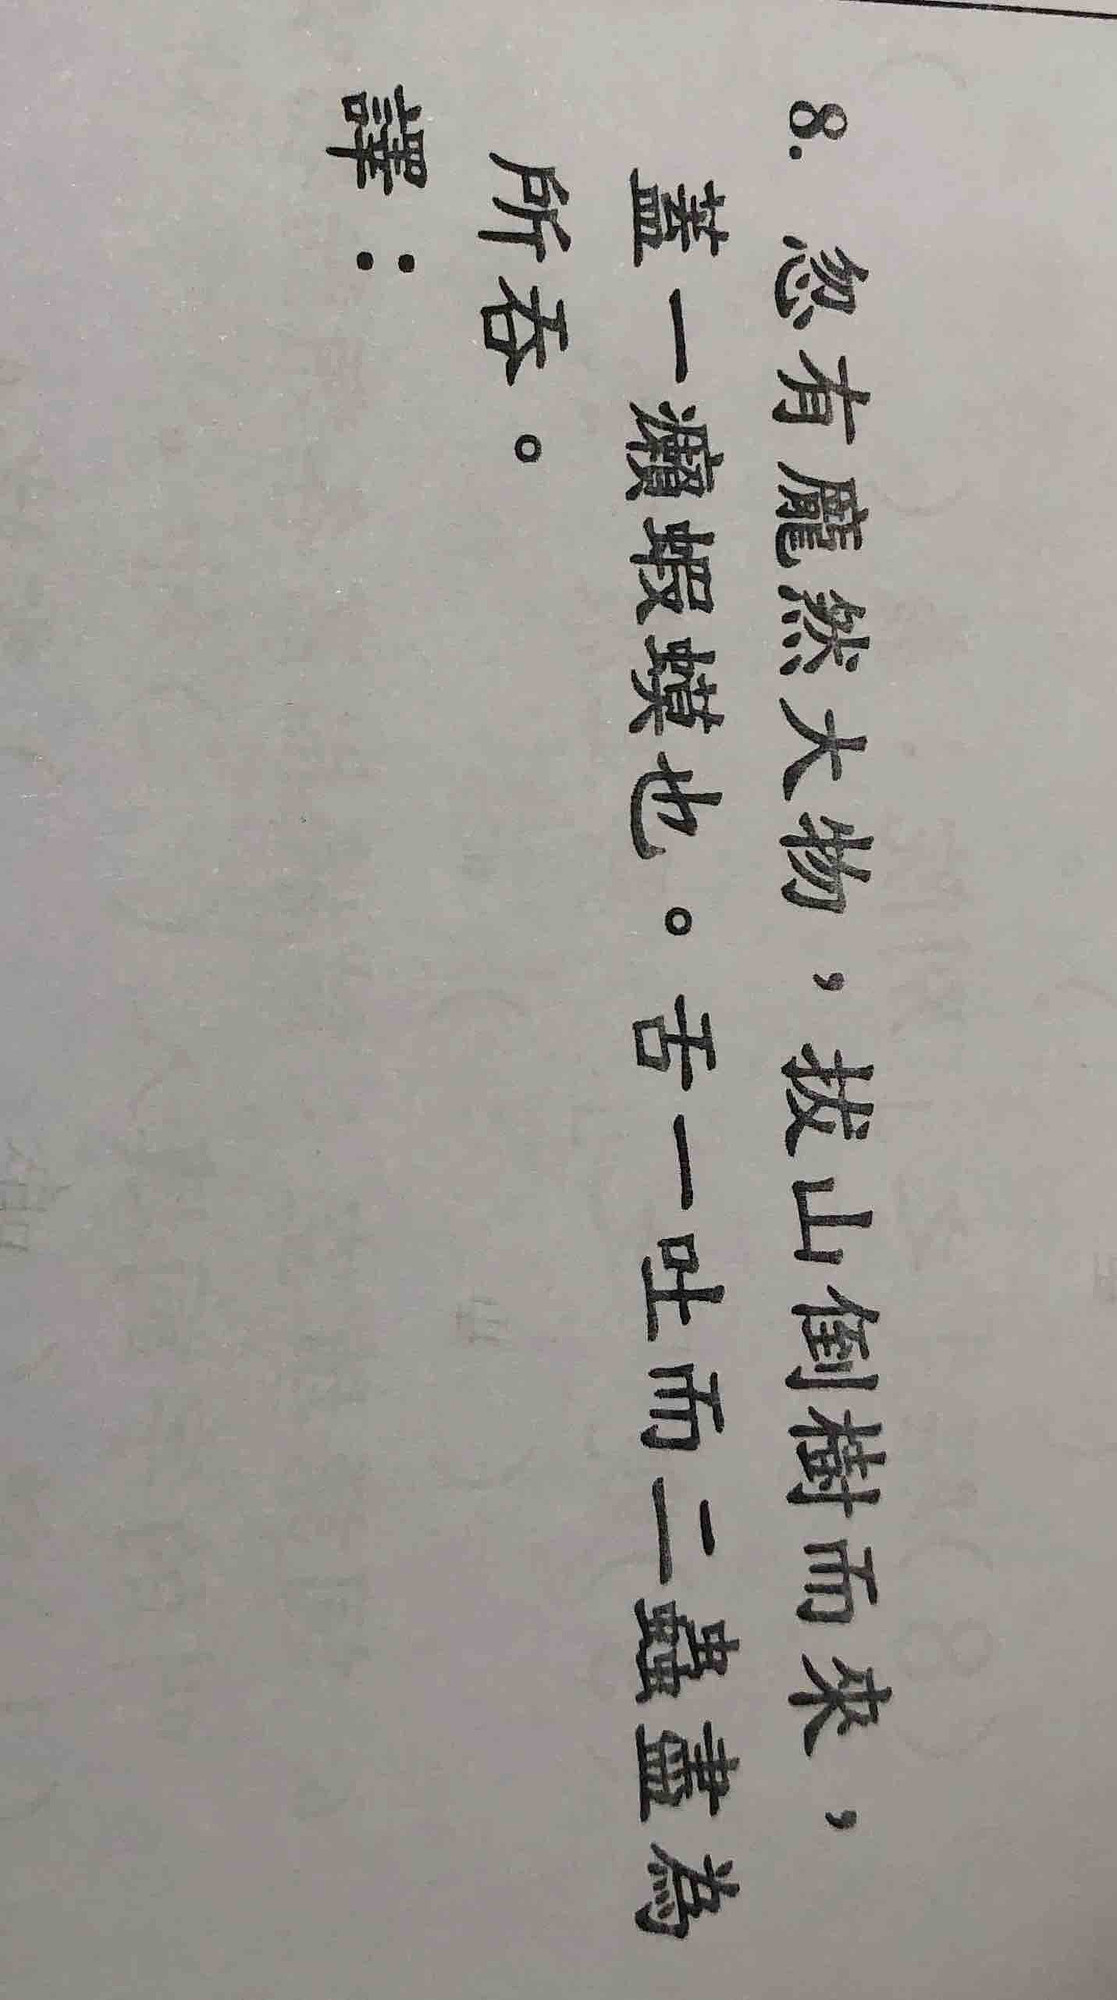 8. 忽有龐然大物，拔山倒樹而來，
蓋一癩蝦蟆也。舌一吐而二蟲盡為
所吞。
譯：